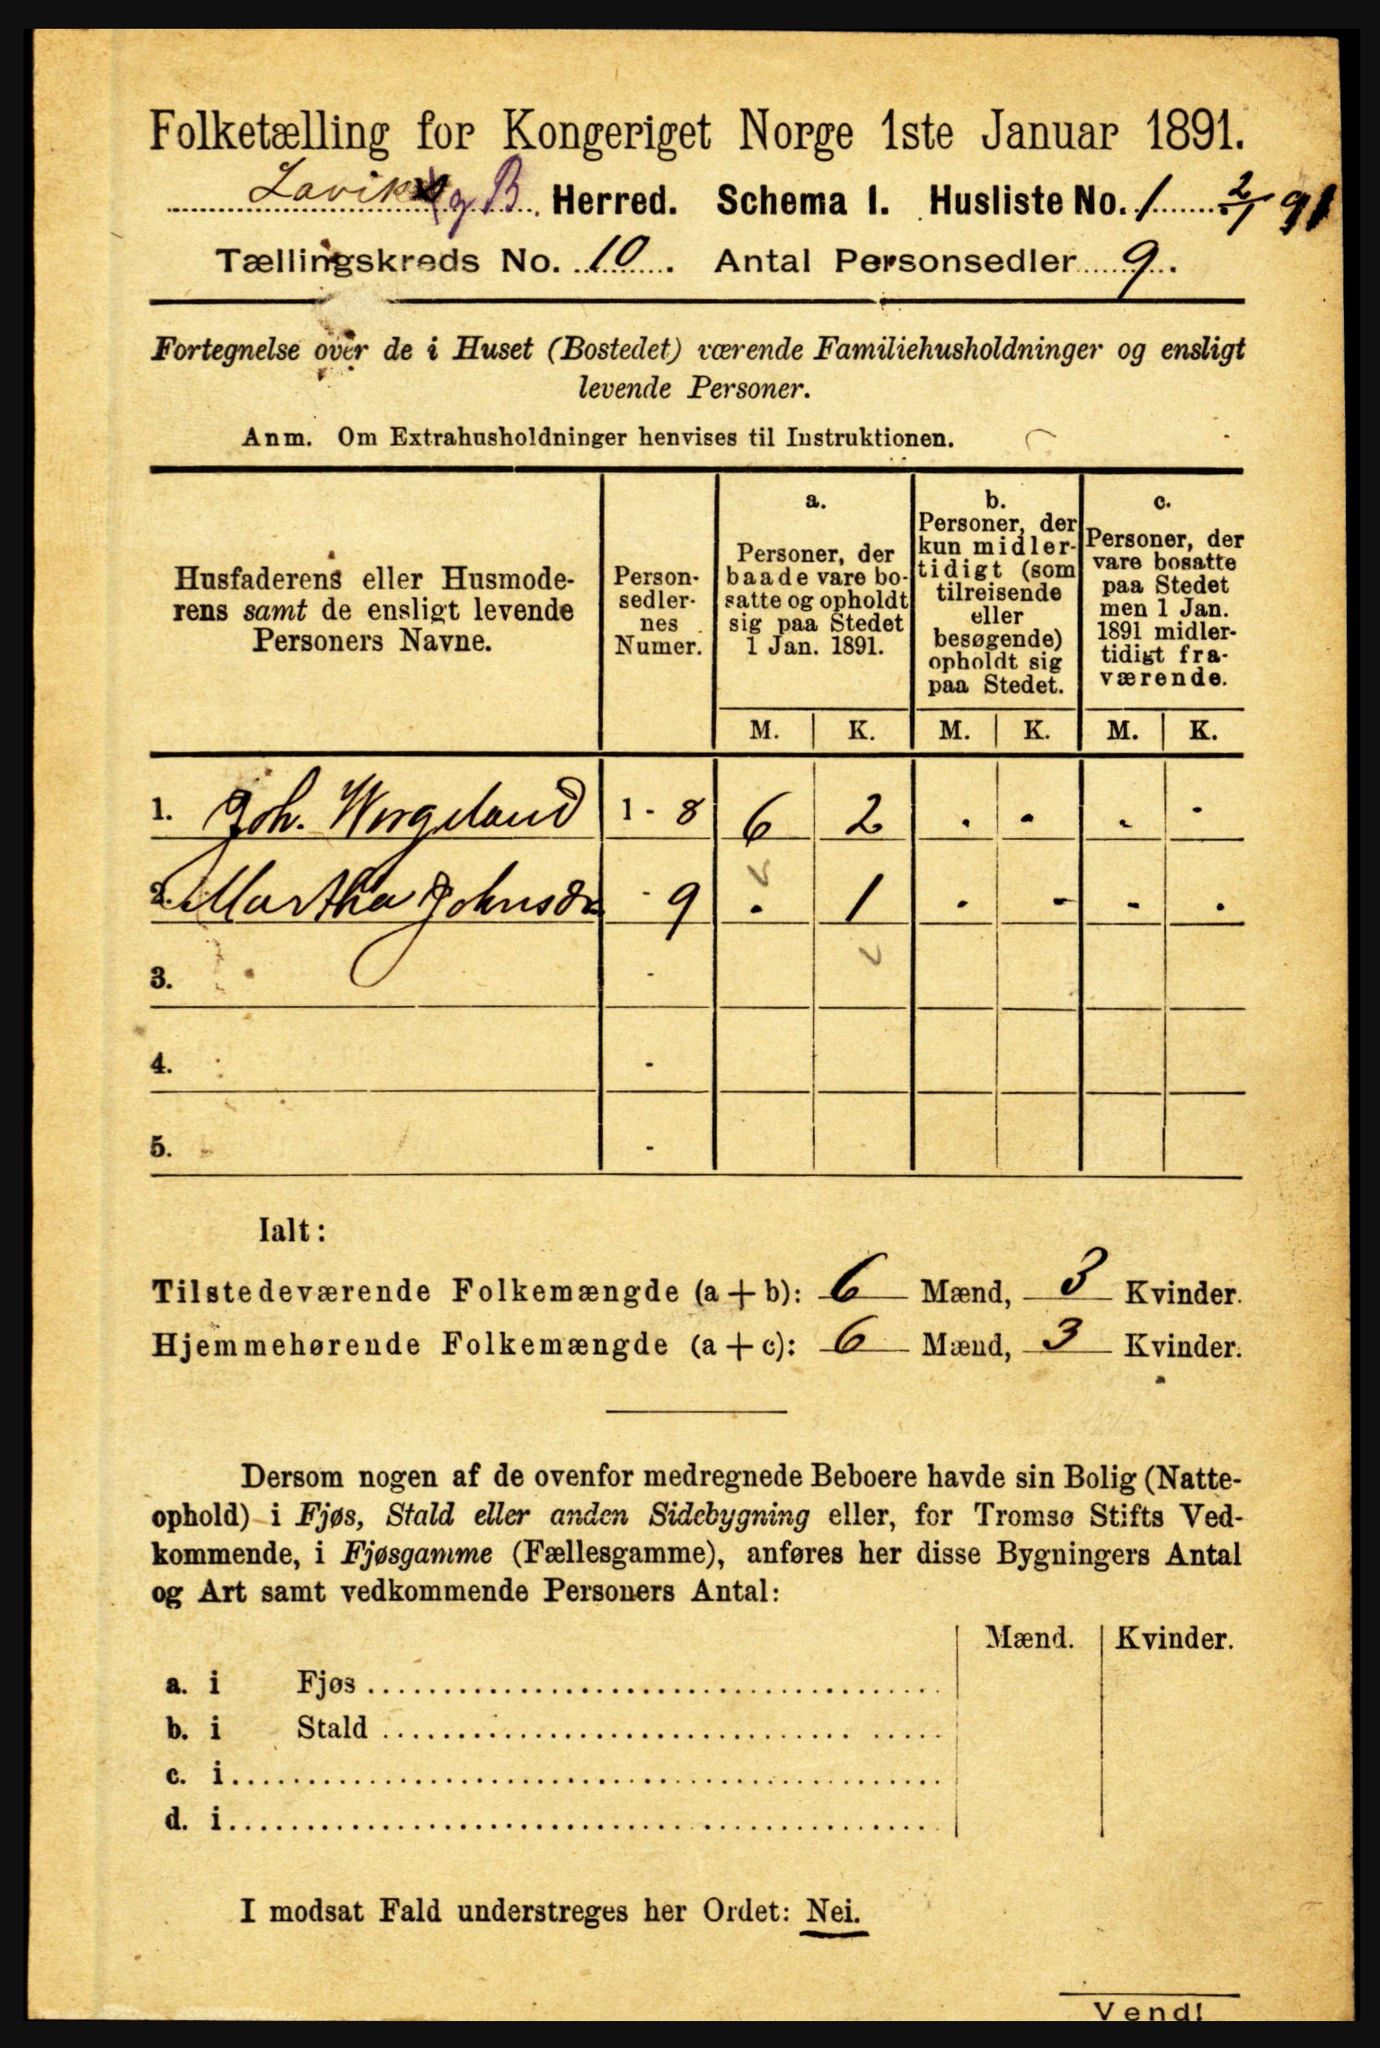 Folketælling for Kongeriget Norge 1ste Januar 1891.
Lavik og B. Herred. Schema I. Husliste No. 1 2/1 91
Tællingskreds No. 10. Antal Personsedler 9.
Fortegnelse over de i Huset (Bostedet) værende Familiehusholdninger og ensligt
levende Personer.
Anm. Om Extrahusholdninger henvises til Instruktionen.
Husfaderens eller Husmode-
rens samt de ensligt levende
Personers Navne.
Person-
sedler-
nes
Numer.
a.
Personer, der
baade vare bo-
satte og opholdt
sig paa Stedet
1 Jan. 1891.
b.
Personer, der
kun midler-
tidigt (som
tilreisende
eller
besøgende)
opholdt sig
paa Stedet.
c.
Personer, der
vare bosatte
paa Stedet
men 1 Jan.
1891 midler-
tidigt fra-
værende.
M. K. M. K. M. K.
1. Joh. Wergeland 1 - 8 6 2 . - . -
2. Martha Johnsdr - 9 . 1 . - - .
3. -
4. -
5. -
Ialt:
Tilstedeværende Folkemængde (a + b): 6 Mænd, 3 Kvinder.
Hjemmehørende Folkemængde (a + c): 6 Mænd, 3 Kvinder.
Dersom nogen af de ovenfor medregnede Beboere havde sin Bolig (Natte-
ophold) i Fjøs, Stald eller anden Sidebygning eller, for Tromsø Stifts Ved-
kommende, i Fjøsgamme (Fællesgamme), anføres her disse Bygningers Antal
og Art samt vedkommende Personers Antal:
Mænd. Kvinder.
a. i Fjøs
b. i Stald
c. i
d. i
I modsat Fald understreges her Ordet: Nei.
Vend!